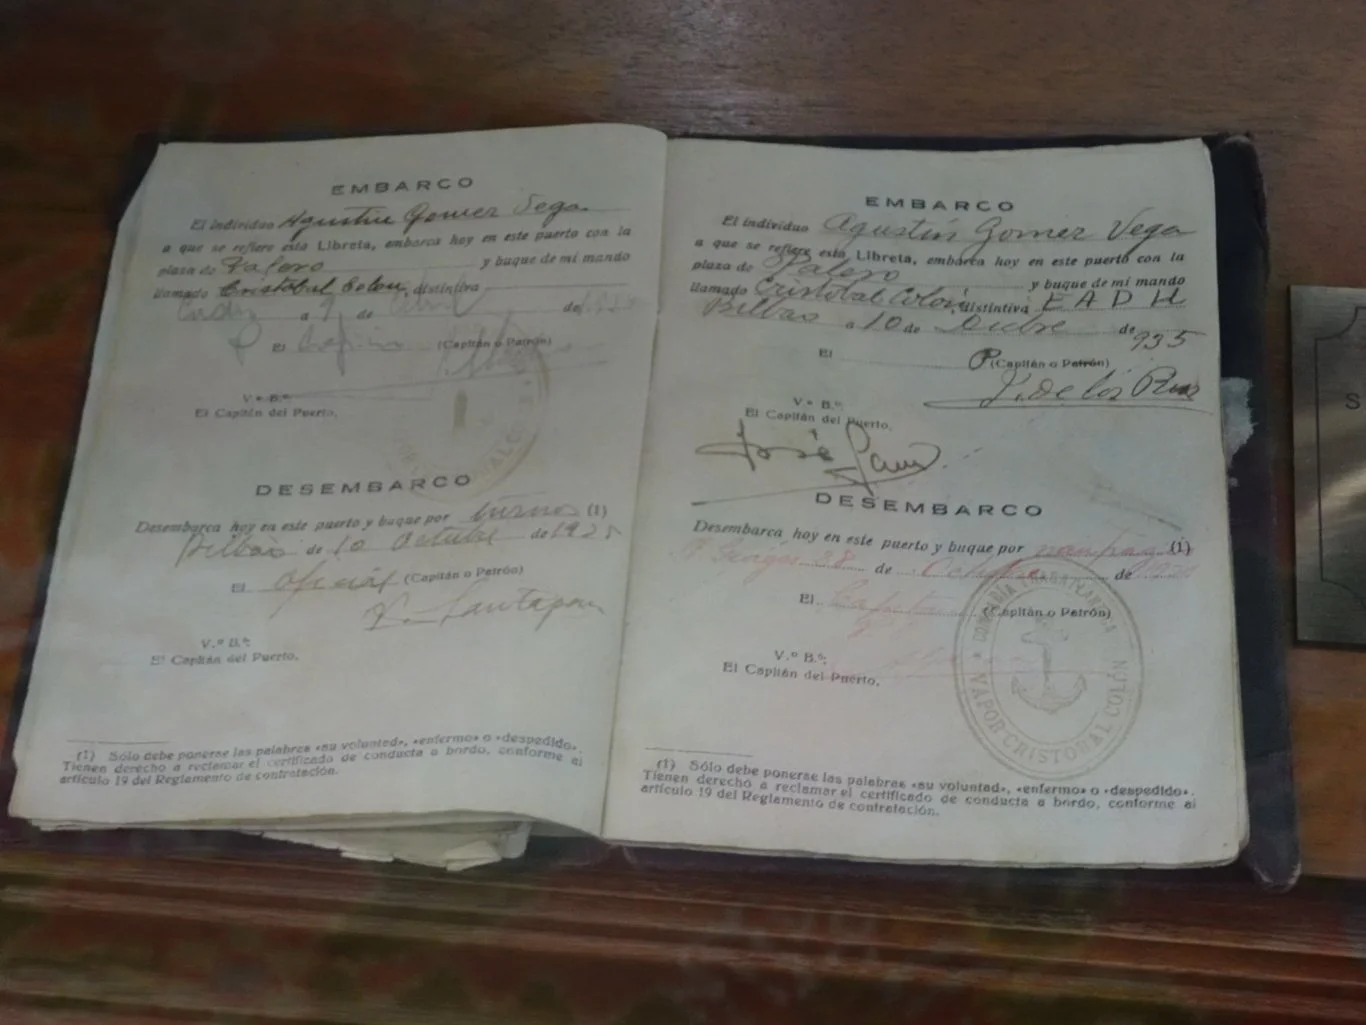 EMBARCO
El individuo Agustín Gomez Vega
a que se refiere esta Libreta, embarca hoy en este puerto con la
plaza de Palero y buque de mi mando
llamado Cristóbal Colón, distintiva
Cadiz a 9 de de
El (Capitán o Patrón)
V.º B.º:
El Capitán del Puerto,
DESEMBARCO
Desembarca hoy en este puerto y buque por (1)
Bilbao de 10 Octubre de 1925
El Oficial (Capitán o Patrón)
V.º B.º:
El Capitán del Puerto,
(1) Sólo debe ponerse las palabras «su voluntad», «enfermo» o «despedido».
Tienen derecho a reclamar el certificado de conducta a bordo, conforme al
artículo 19 del Reglamento de contratación.
EMBARCO
El individuo Agustín Gomez Vega
a que se refiere esta Libreta, embarca hoy en este puerto con la
plaza de Palero y buque de mi mando
llamado Cristóbal Colón, distintiva E A D H
Bilbao a 10 de Dicbre de 935
El P (Capitán o Patrón)
J. de los Rios
V.º B.º:
El Capitán del Puerto,
José
DESEMBARCO
Desembarca hoy en este puerto y buque por (1)
28 de Octubre de
El Capitan (Capitán o Patrón)
V.º B.º:
El Capitán del Puerto,
COMPAÑIA TRASATLANTICA
VAPOR CRISTOBAL COLÓN
(1) Sólo debe ponerse las palabras «su voluntad», «enfermo» o «despedido».
Tienen derecho a reclamar el certificado de conducta a bordo, conforme al
artículo 19 del Reglamento de contratación.
S